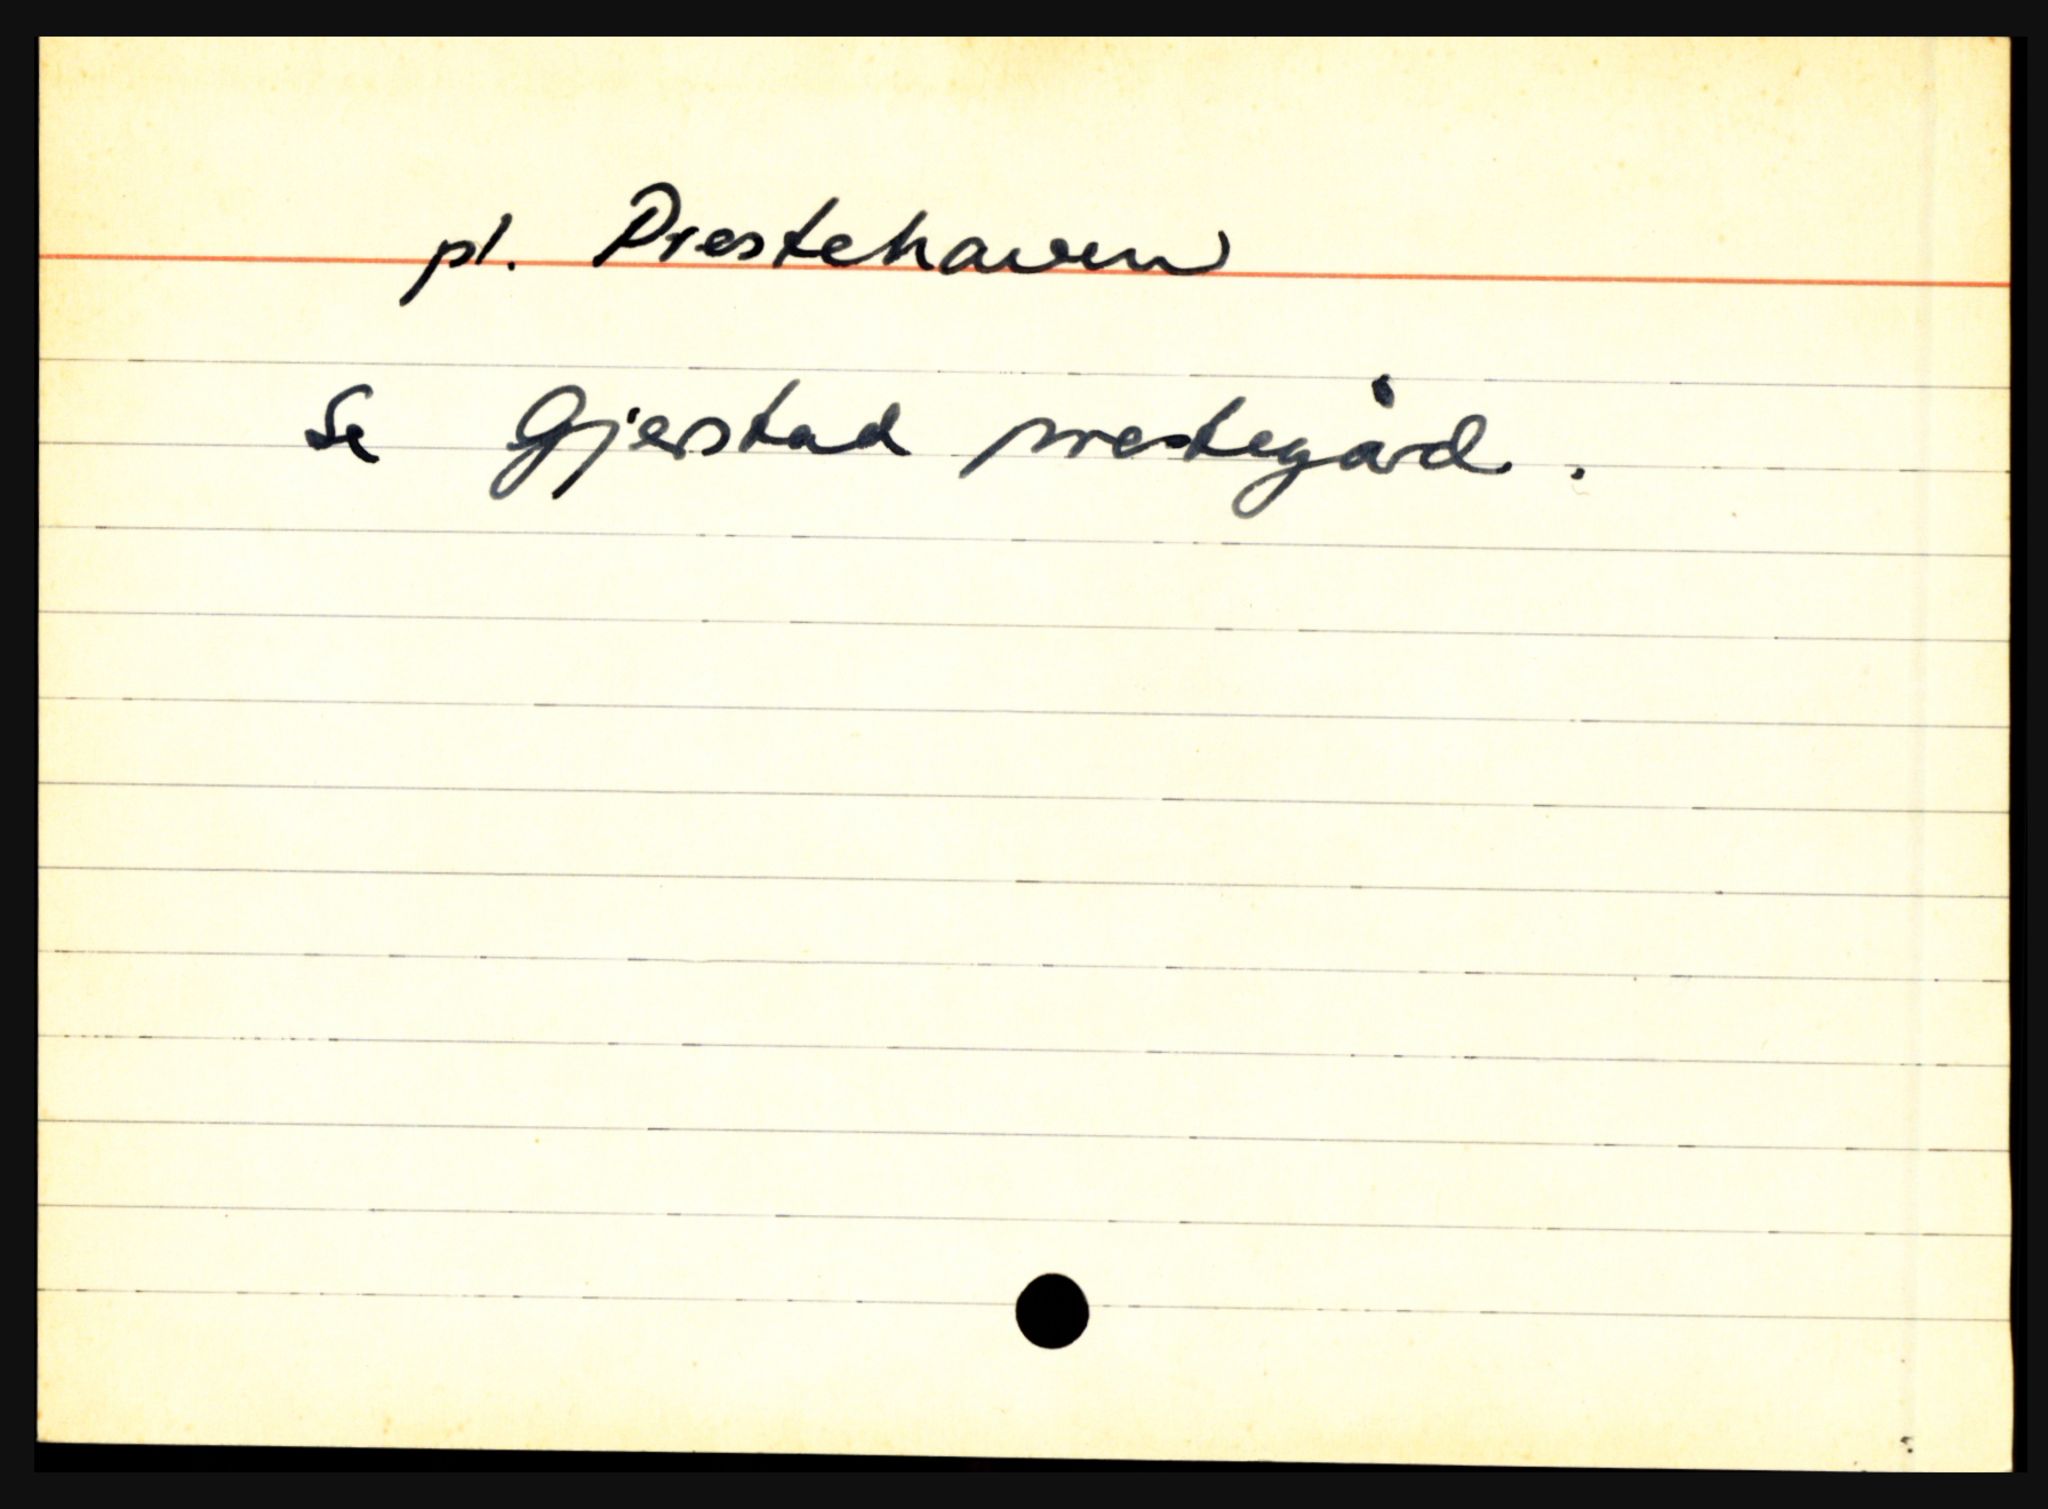 pl. Prestehaven
Se Gjerstad prestegård.